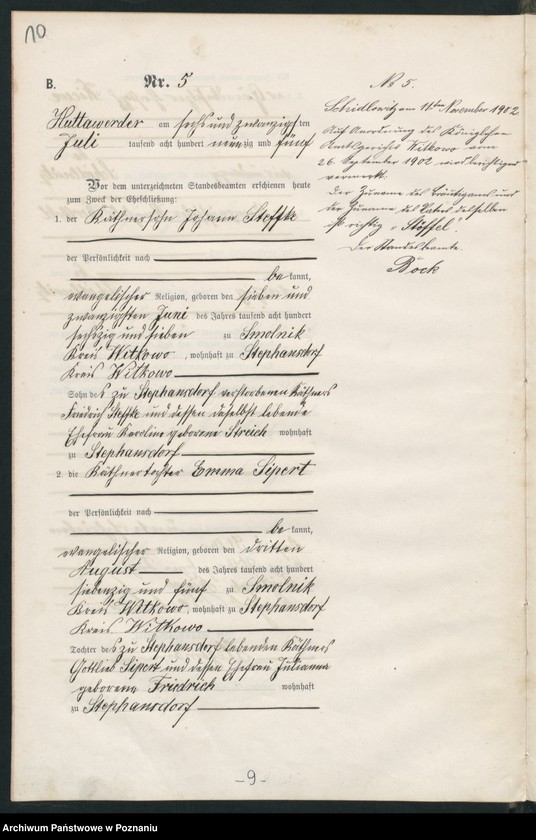 10
B.
Nr. 5
Huttawerder am sechs und zwanzigsten
Juli tausend acht hundert neunzig und fünf
Vor dem unterzeichneten Standesbeamten erschienen heute
zum Zweck der Eheschließung:
1. der Käthnersohn Johann Steffke
der Persönlichkeit nach
be kannt,
evangelischer Religion, geboren den sieben und
zwanzigsten Juni des Jahres tausend acht hundert
sechszig und sieben zu Smolnik
Kreis Witkowo, wohnhaft zu Stephansdorf
Kreis Witkowo
Sohn des zu Stephansdorf verstorbenen Käthners
Friedrich Steffke und dessen daselbst lebende
Ehefrau Karoline geborene Streich wohnhaft
zu Stephansdorf
2. die Käthnertochter Emma Sipert
der Persönlichkeit nach
be kannt,
evangelischer Religion, geboren den dritten
August des Jahres tausend acht hundert
siebenzig und fünf zu Smolnik
Kreis Witkowo, wohnhaft zu Stephansdorf
Kreis Witkowo
Tochter des zu Stephansdorf lebenden Käthners
Gottlieb Sipert und dessen Ehefrau Julianna
geborene Friedrich wohnhaft
zu Stephansdorf
No 5.
Schidlowitz am 11ten November 1902.
Auf Anordnung des Königlichen
Amtsgerichts Witkowo vom
26. September 1902 wird berichtigend
vermerkt.
Der Zuname des Bräutigams und
der Zuname des Vaters desselben
ist richtig "Stöffel".
Der Standesbeamte
Bock
- 9 -
Archiwum Państwowe w Poznaniu